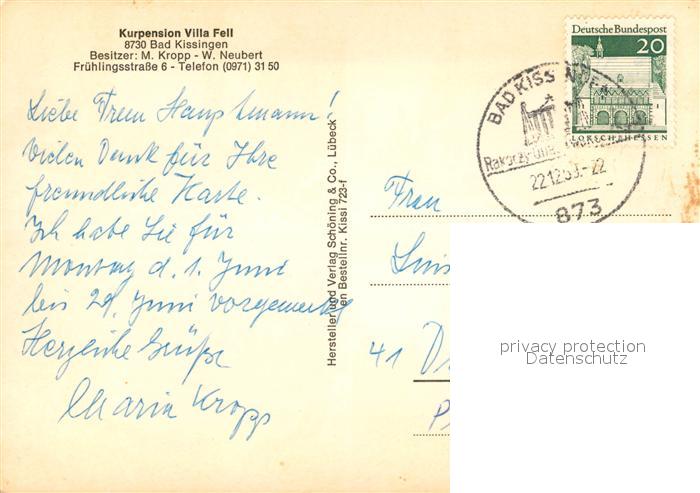 Kurpension Villa Fell
8730 Bad Kissingen
Besitzer: M. Kropp - W. Neubert
Frühlingsstraße 6 - Telefon (0971) 31 50
Liebe Frau Hauptmann!
Vielen Dank für Ihre
freundliche Karte.
Ich habe Sie für
Montag d. 1. Juni
bis 29. Juni vorgemerkt
Herzliche Grüße
Maria Kropp
Hersteller und Verlag Schöning & Co., Lübeck
en Bestellnr. Kissi 723-f
Deutsche Bundespost
20
LORSCH/HESSEN
BAD KISSINGEN
Rakoczy
22.12.69.-22
873
Frau
41
privacy protection
Datenschutz